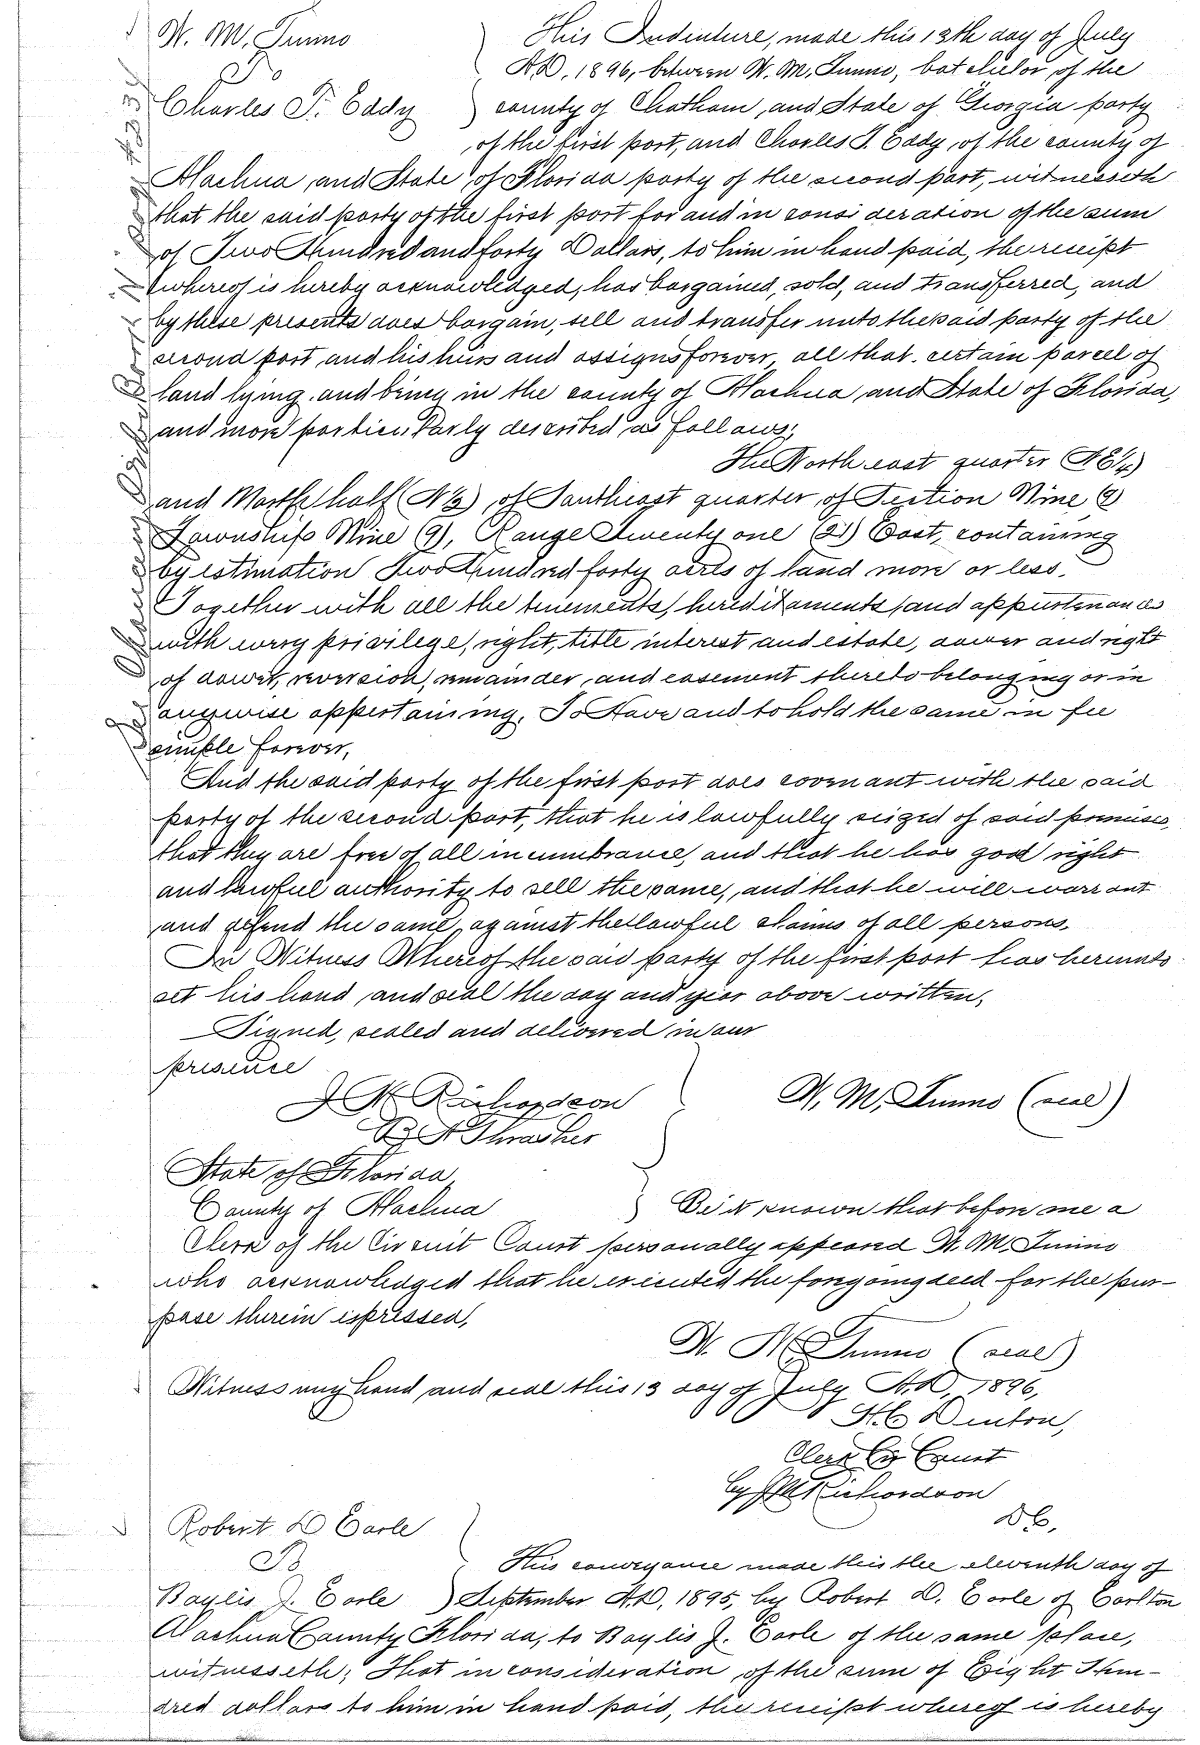 W. M. Tunno
To
Charles T. Eddy
This Indenture, made this 13th day of July
A.D. 1896, between W. M. Tunno, batchelor of the
county of Chatham, and State of Georgia party
of the first part, and Charles T. Eddy, of the county of
Alachua and State of Florida party of the second part, witnesseth
that the said party of the first part for and in consideration of the sum
of Two Hundred and forty Dollars, to him in hand paid, the receipt
whereof is hereby acknowledged, has bargained, sold, and transferred, and
by these presents does bargain, sell and transfer unto the said party of the
second part and his heirs and assigns forever, all that certain parcel of
land lying and being in the county of Alachua and State of Florida,
and more particularly described as follows;
The North east quarter (NE¼)
and North half (N½) of Southeast quarter of Section Nine (9)
Township Nine (9), Range Twenty one (21) East, containing
by estimation Two Hundred forty acres of land more or less.
Together with all the tenements, hereditaments, and appurtenances
with every privilege, right, title interest and estate, dower and right
of dower, reversion, remainder, and easement thereto belonging or in
anywise appertaining, To Have and to hold the same in fee
simple forever,
And the said party of the first part does covenant with the said
party of the second part, that he is lawfully seized of said premises,
that they are free of all incumbrance, and that he has good right
and lawful authority to sell the same, and that he will warrant
and defend the same, against the lawful claims of all persons,
In Witness Whereof the said party of the first part has hereunto
set his hand and seal the day and year above written,
Signed, sealed and delivered in our
presence
J M Richardson
W. M. Tunno (seal)
B A Thrasher
State of Florida
County of Alachua
Be it known that before me a
Clerk of the Circuit Court personally appeared W. M. Tunno
who acknowledged that he executed the foregoing deed for the pur-
pose therein expressed,
W. M. Tunno (seal)
Witness my hand and seal this 13 day of July A.D. 1896,
H. C Denton,
Clerk Co Court
by J M Richardson
D C,
Robert D Earle
To
This conveyance made this the eleventh day of
Baylis J. Earle
September A.D. 1895, by Robert D. Earle of Earlton
Alachua County Florida, to Baylis J. Earle of the same place,
witnesseth; That in consideration of the sum of Eight Hun-
dred dollars to him in hand paid, the receipt whereof is hereby